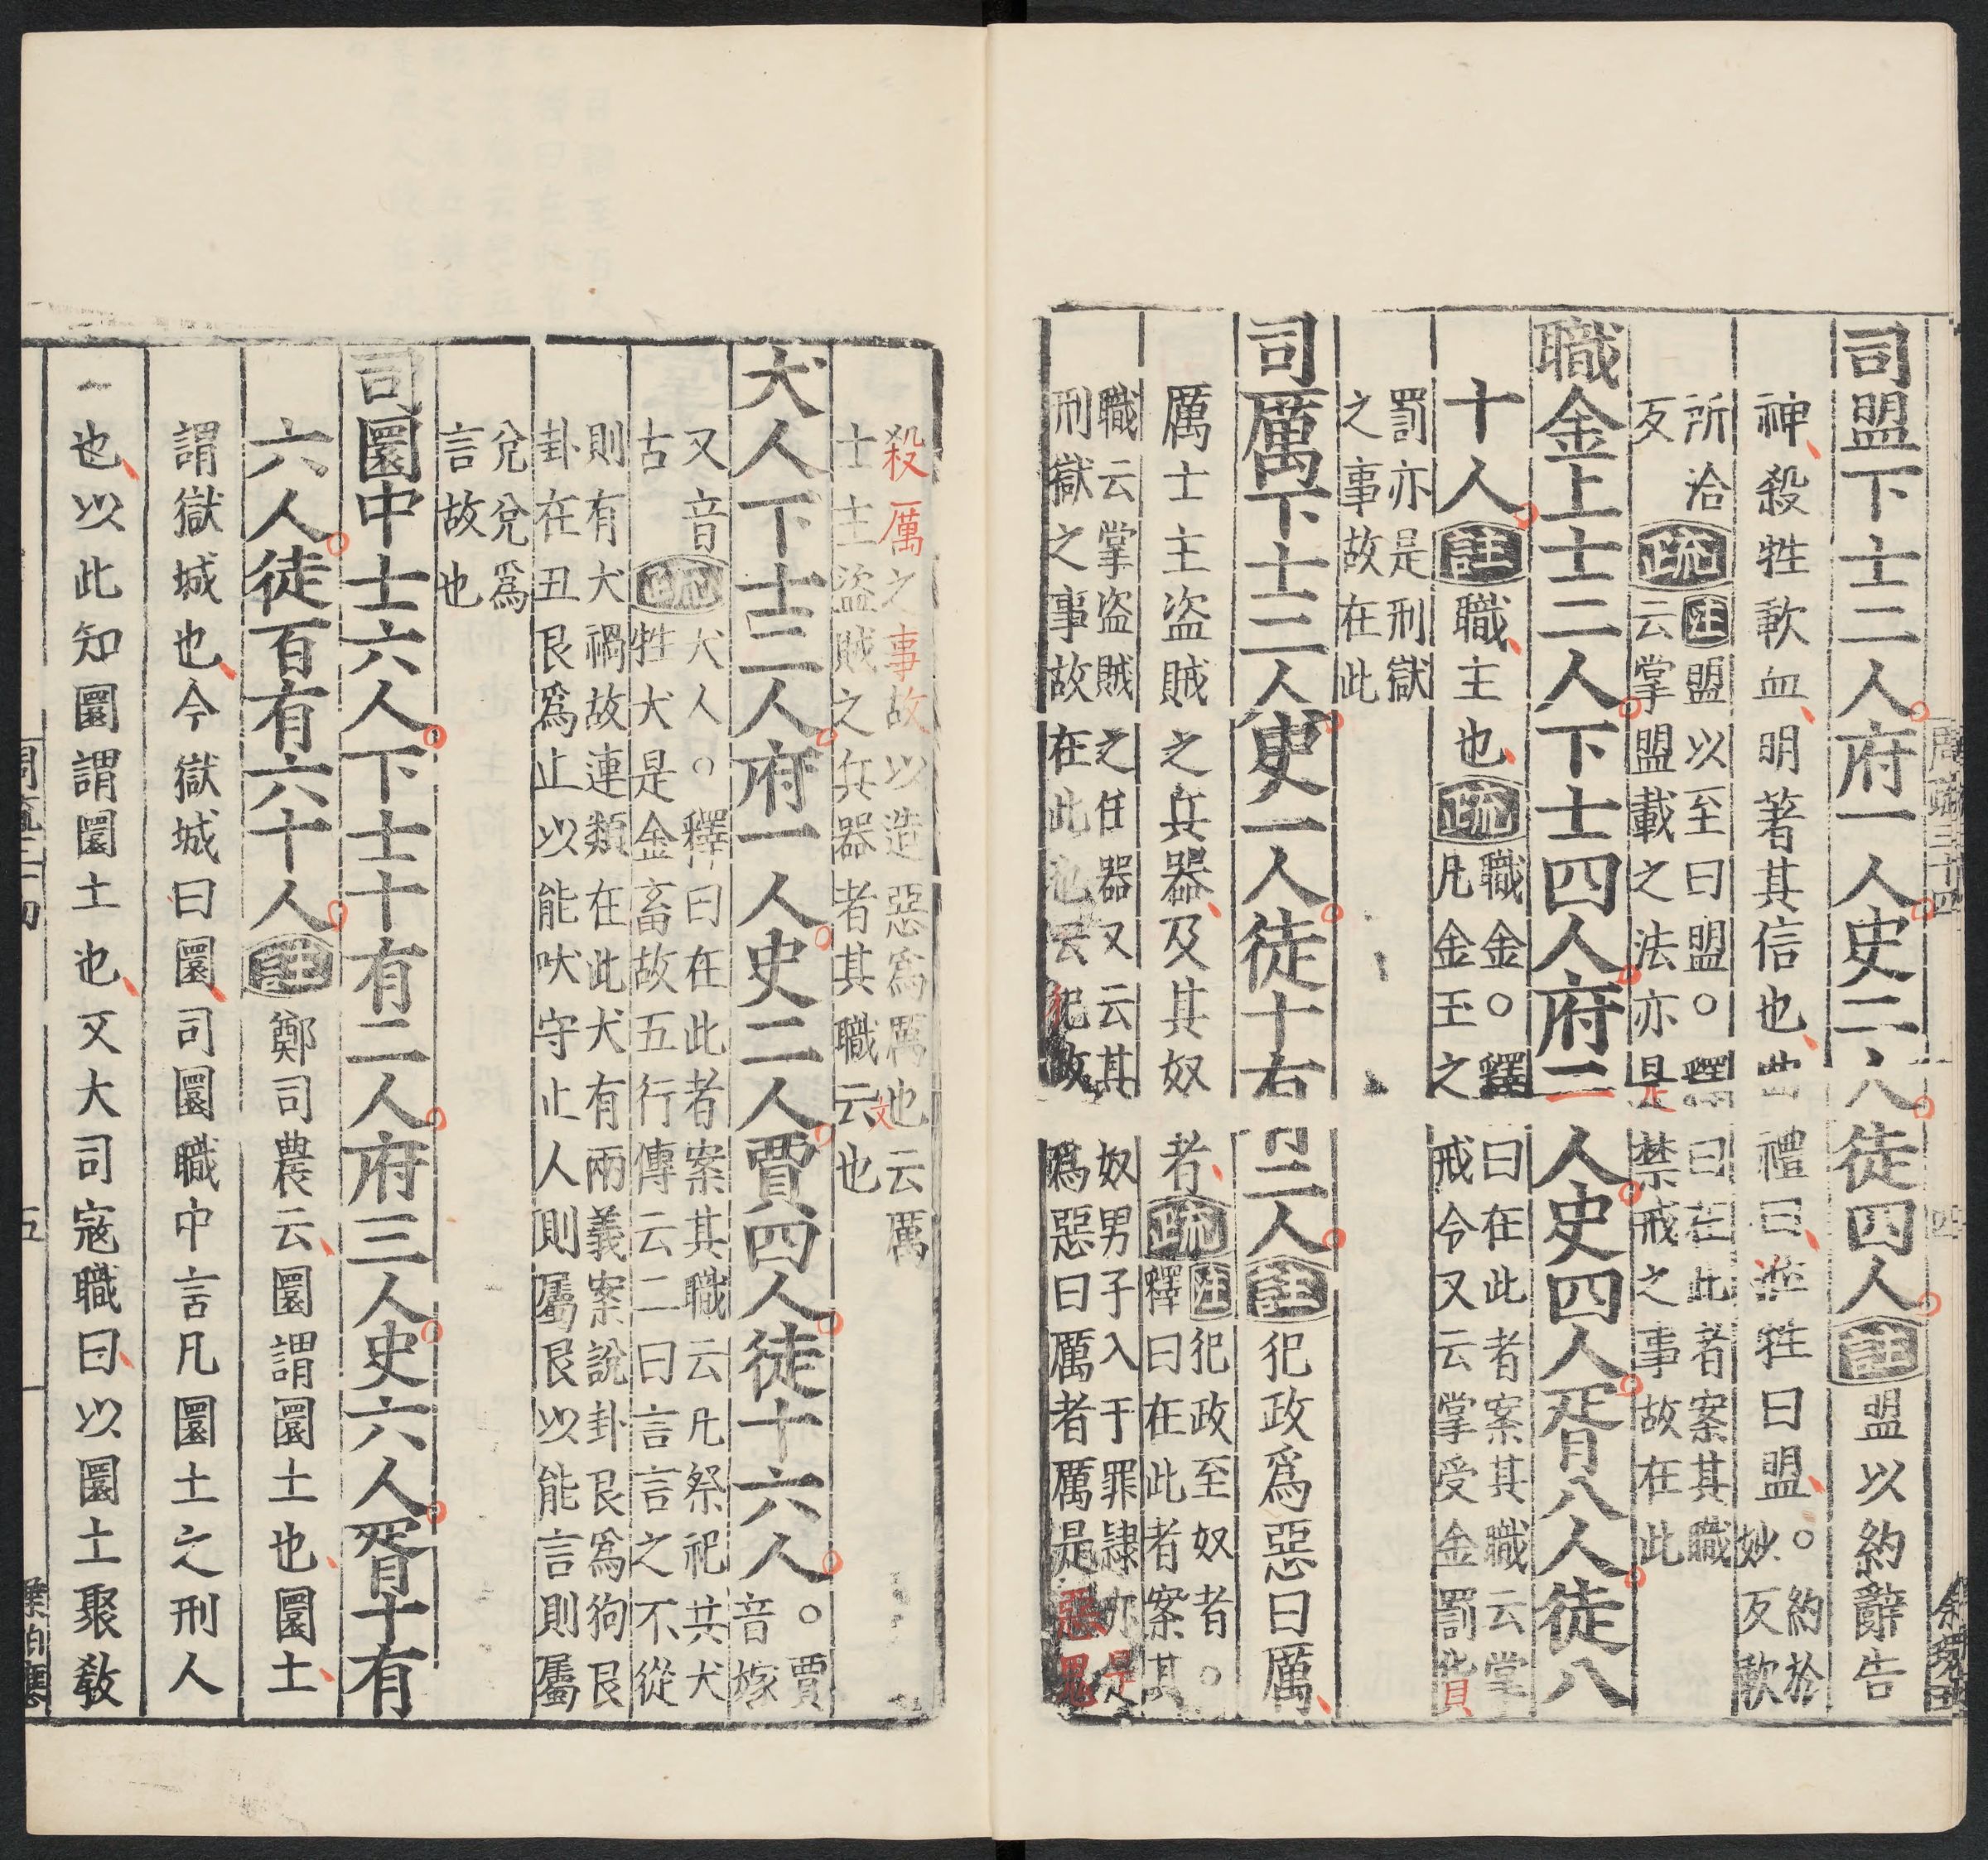 司盟下士二人府一人史二人徒四人註盟以約辭告
神殺牲歃血明著其信也曲禮曰涖牲曰盟○約於
妙反歃
所洽
反疏註盟以至曰盟○釋曰在此者案其職
云掌盟載之法亦是禁戒之事故在此
職金上士二人下士四人府二人史四人胥八人徒八
十人註職主也疏職金○釋曰在此者案其職云掌
凡金玉之戒令又云掌受金罰貨
罰亦是刑獄
之事故在此
司厲下士二人史一人徒十有二人註犯政爲惡曰厲
厲士主盜賊之兵器及其奴者疏註犯政至奴者○
釋曰在此者案其
職云掌盜賊之任器又云其奴男子入于罪隸亦是
刑獄之事故在此也云犯政爲惡曰厲者厲是惡鬼
殺厲之事故以造惡爲厲也云厲
士主盜賊之兵器者其職文云也
犬人下士二人府一人史二人賈四人徒十六人○賈
音嫁
又音
古疏犬人○釋曰在此者案其職云凡祭祀共犬
牲犬是金畜故五行傳云二曰言言之不從
則有犬禍故連類在此犬有兩義案說卦艮爲狗艮
卦在丑艮爲止以能吠守止人則屬艮以能言則屬
兌兌爲
言故也
司圜中士六人下士十有二人府三人史六人胥十有
六人徒百有六十人註鄭司農云圜謂圜土也圜土
謂獄城也今獄城曰圜司圜職中言凡圜土之刑人
也以此知圜謂圜土也又大司寇職曰以圜土聚敎